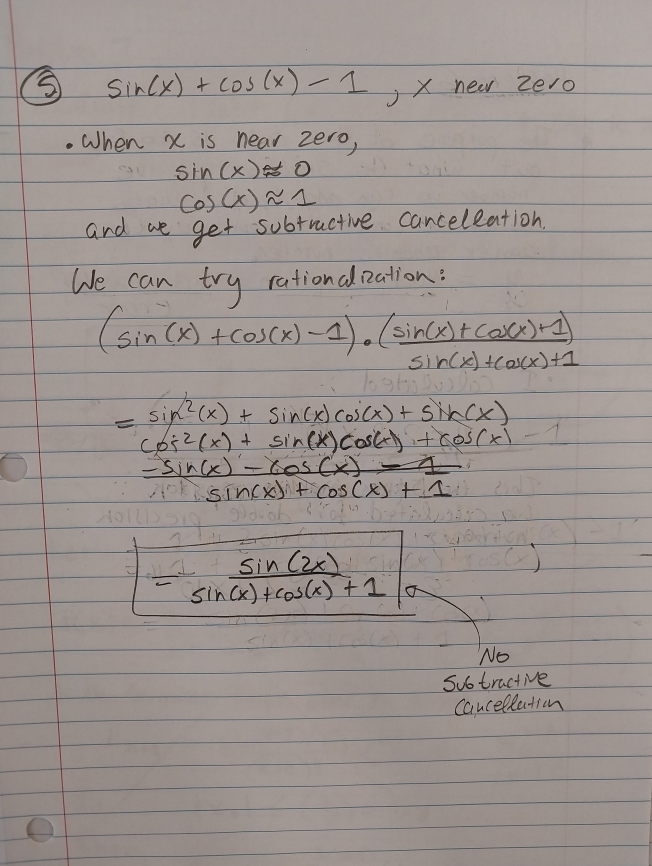 ⑤ sin(x) + cos(x) - 1 , x near zero
• When x is near zero,
sin(x) ≈ 0
cos(x) ≈ 1
and we get subtractive cancellation.
We can try rationalization:
(sin(x) + cos(x) - 1) • (sin(x) + cos(x) + 1)
sin(x) + cos(x) + 1
= sin²(x) + sin(x)cos(x) + sin(x)
cos²(x) + sin(x)cos(x) + cos(x)
- sin(x) - cos(x) - 1
sin(x) + cos(x) + 1
= sin(2x)
sin(x) + cos(x) + 1
No
Subtractive
Cancellation